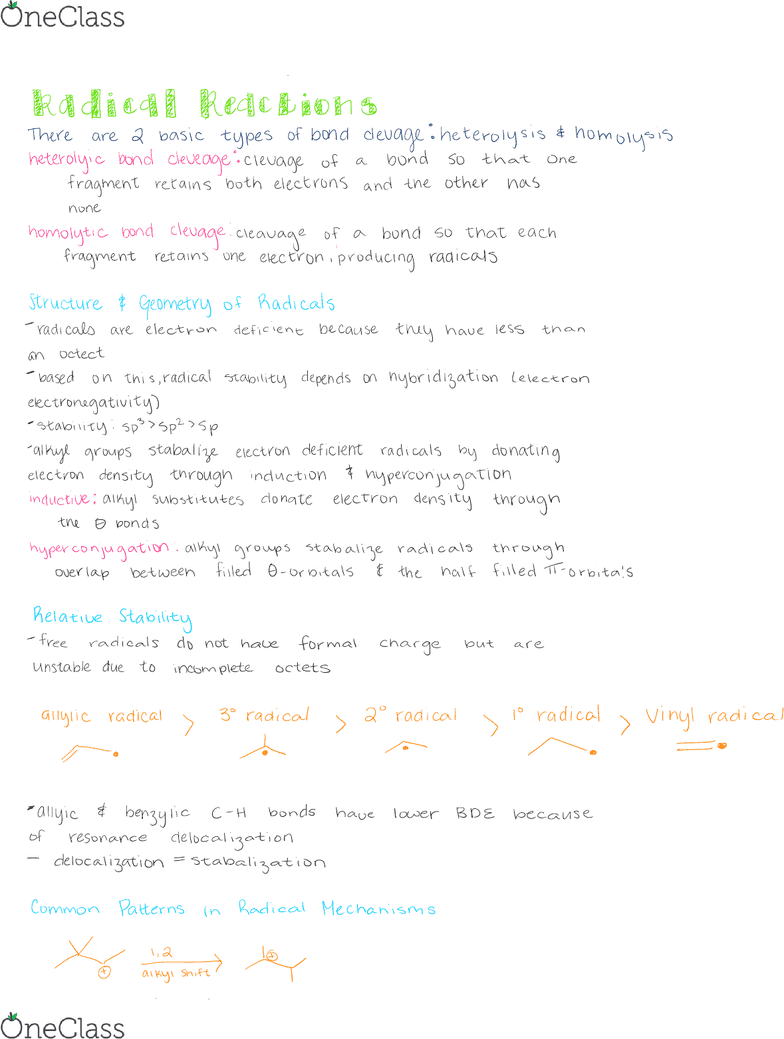 OneClass
Radical Reactions
There are 2 basic types of bond clevage: heterolysis & homolysis
heterolyic bond cleveage: clevage of a bond so that one
fragment retains both electrons and the other has
none
homolytic bond clevage: cleavage of a bond so that each
fragment retains one electron, producing radicals
Structure & Geometry of Radicals
- radicals are electron deficient because they have less than
an octect
- based on this, radical stability depends on hybridization (electron
electronegativity)
- stability: sp³ > sp² > sp
- alkyl groups stabalize electron deficient radicals by donating
electron density through induction & hyperconjugation
inductive: alkyl substitutes donate electron density through
the θ bonds
hyperconjugation: alkyl groups stabalize radicals through
overlap between filled θ-orbitals & the half filled π-orbitals
Relative Stability
- free radicals do not have formal charge but are
unstable due to incomplete octets
allylic radical > 3° radical > 2° radical > 1° radical > Vinyl radical
- allyic & benzylic C-H bonds have lower BDE because
of resonance delocalization
- delocalization = stabalization
Common Patterns in Radical Mechanisms
1,2
alkyl shift
+ +
OneClass